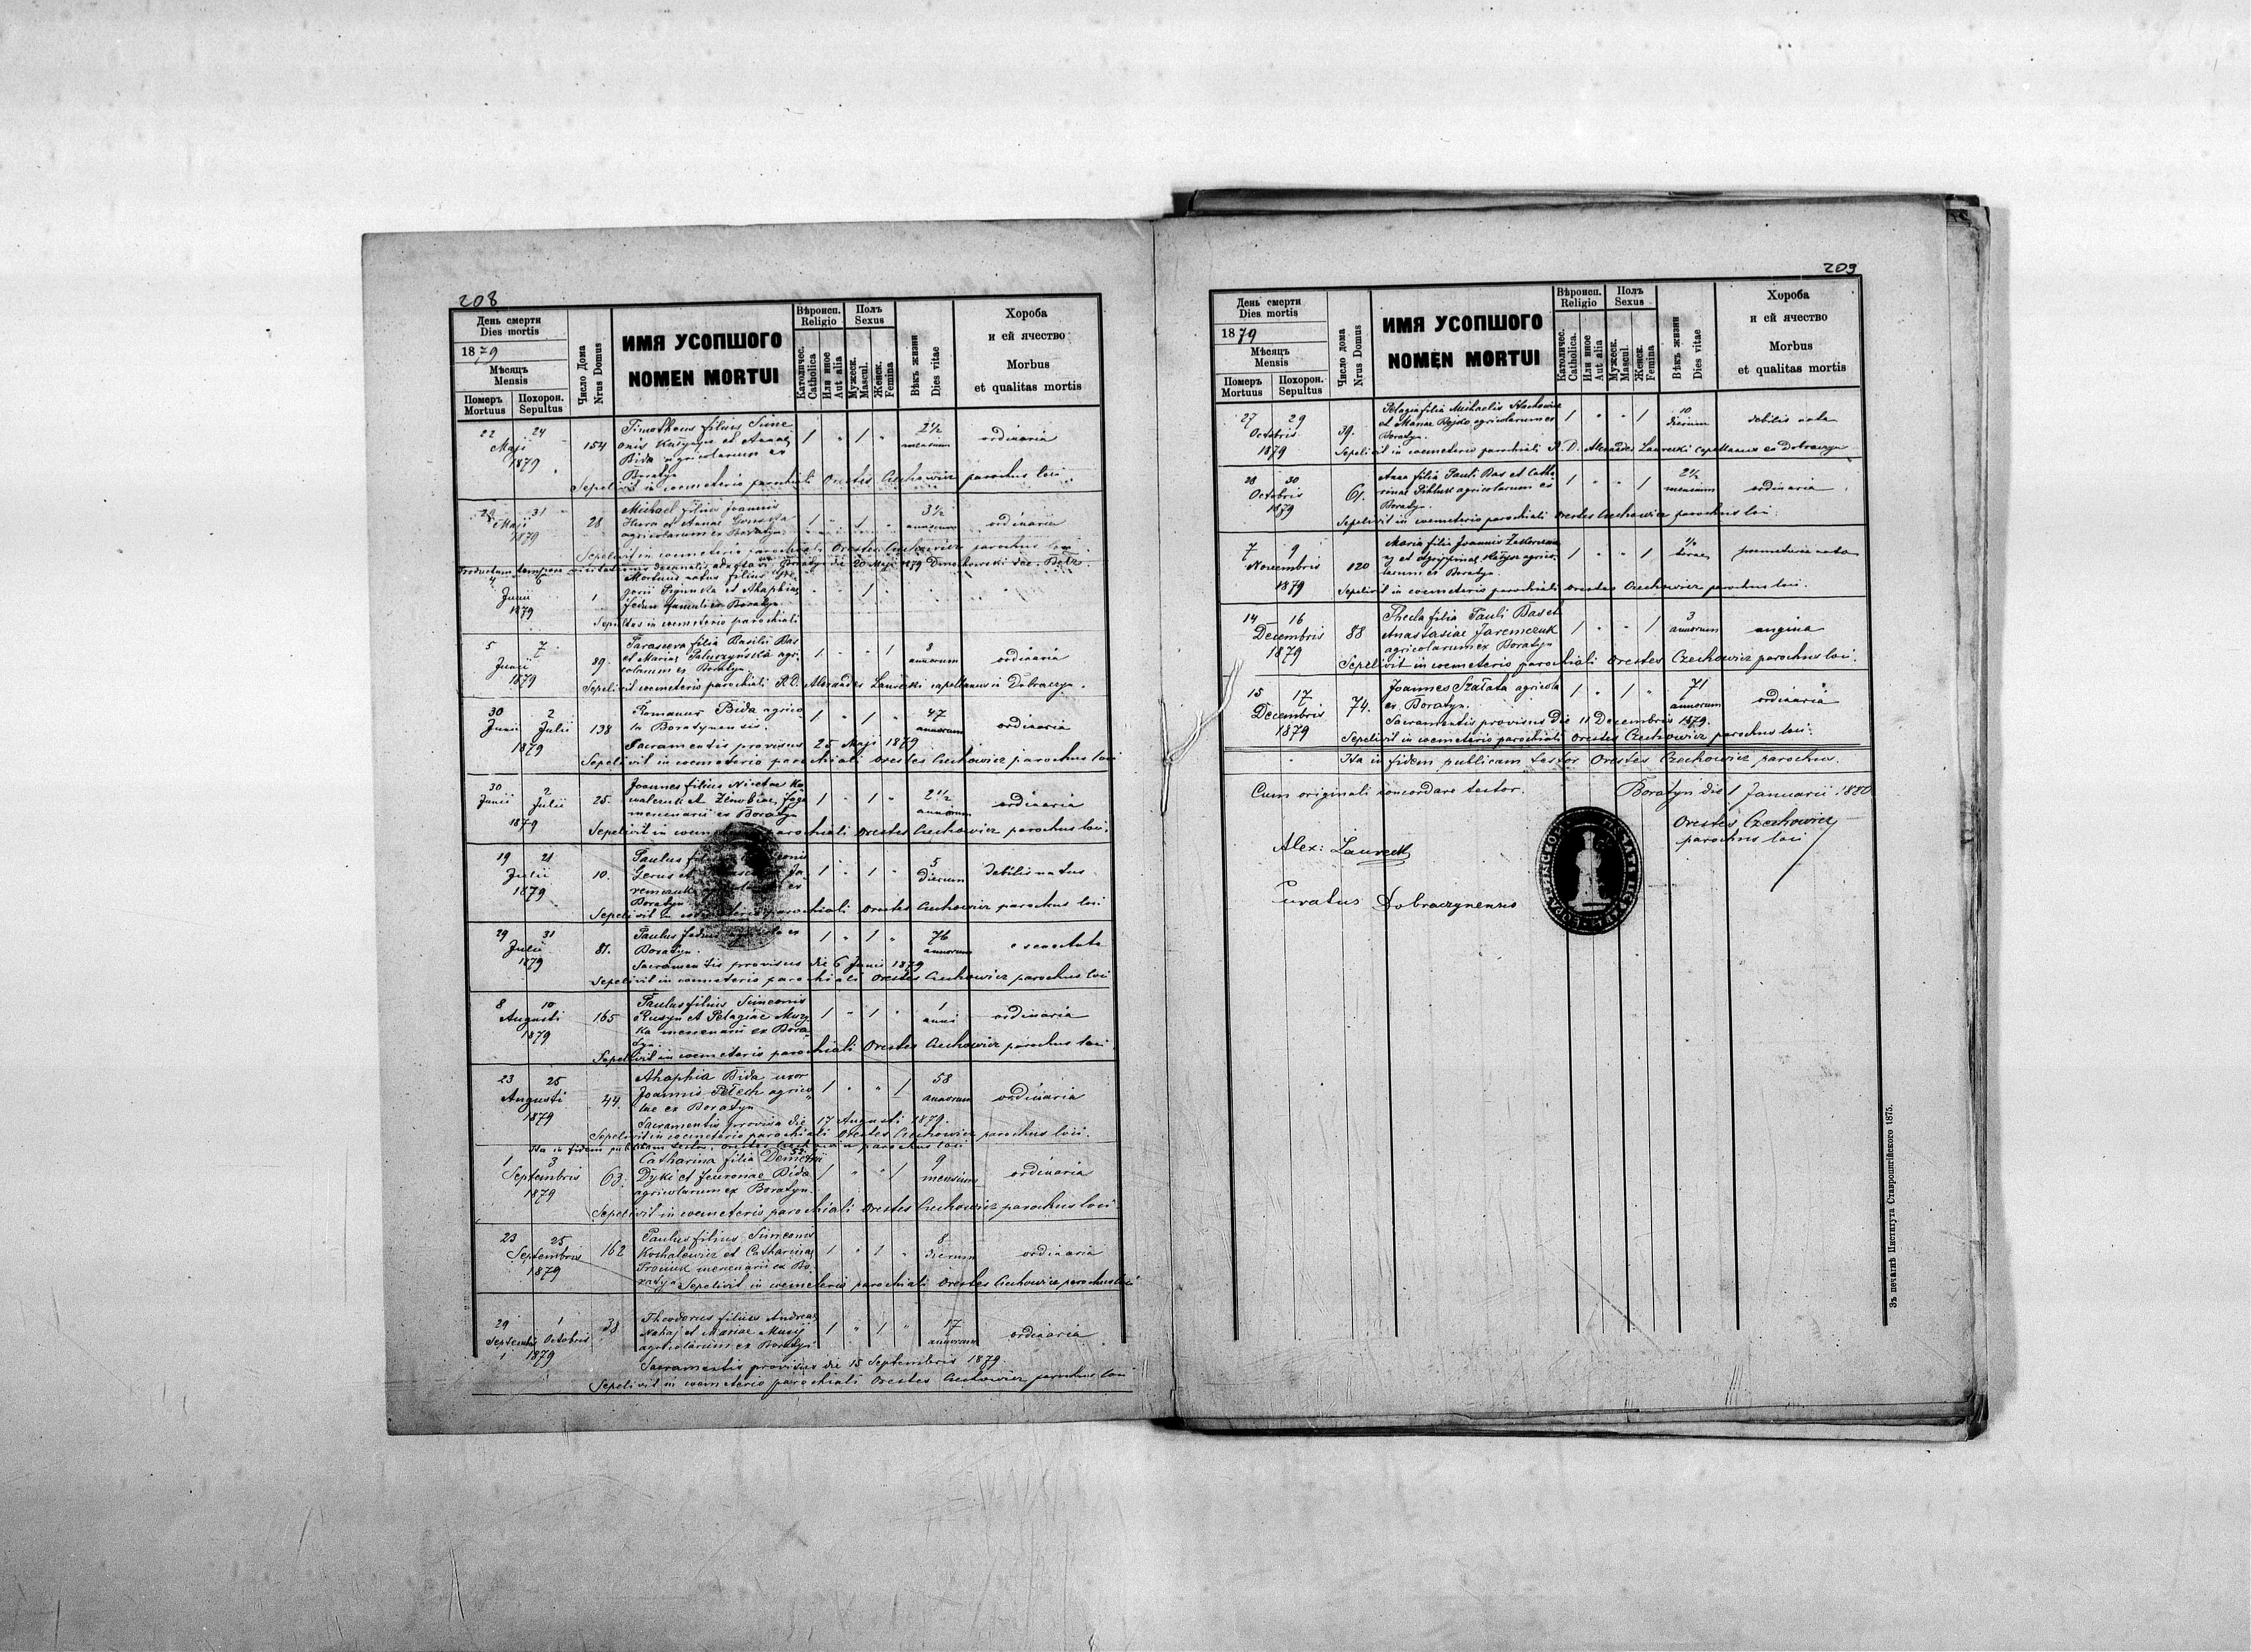 208
День смерти
Dies mortis
1879
Мѣсяцъ
Mensis
Померъ
Mortuus
Похорон.
Sepultus
Число Дома
Nrus Domus
ИМЯ УСОПШОГО
NOMEN MORTUI
Вѣроисп.
Religio
Католичес.
Catholica
Или иное
Aut alia
Полъ
Sexus
Мужеск.
Mascul.
Женск.
Femina
Вѣкъ жизни
Dies vitae
Хороба
и ей ячество
Morbus
et qualitas mortis
22 24
Maji
1879
154
Timotheus filius Sime
onis et Annae
Bida agricolarum ex
Boratyn
1 " 1 "
2 1/2
mensium
ordinaria
Sepelivit in coemeterio parochiali Orestes Czechowicz parochus loci.
29 31
Maji
1879
28
Michael filius Joannis
Hura et Annae
agricolarum ex Boratyn.
1 " 1 "
3 1/2
annorum
ordinaria
Sepelivit in coemeterio parochiali Orestes Czechowicz parochus loci.
Productum tempore visitationis decanalis Boratyn die 20 Maji 1879 Dmochowski dec. Betz.
4 6
Junii
1879
1
Mortuus natus filius Gre
gorii et Ahaphiae
Fedun famuli ex Boratyn.
Sepultus in coemeterio parochiali
5 7
Junii
1879
89.
Parasceva filia Basilii Bas
et Mariae agri
colarum ex Boratyn.
1 " " 1
3
annorum
ordinaria
Sepelivit coemeterio parochiali R.D. Alexander Laurecki capellanus in Dobraczyn.
30 2
Junii Julii
1879
138
Romanus Bida agrico
la Boratynensis.
1 " 1 "
47
annorum
ordinaria
Sacramentis provisus 25 Maji 1879
Sepelivit in coemeterio parochiali Orestes Czechowicz parochus loci
30 2
Junii Julii
1879
25.
Joannes filius Nicetae Ko
walczuk et Zenobiae
mercenarii ex Boratyn
1 " 1 "
2 1/2
annorum
ordinaria
Sepelivit in parochiali Orestes Czechowicz parochus loci.
19 21
Julii
1879
10.
Paulus
Gerus et Ja
remczuk ex
Boratyn
1 " 1 "
5
dierum
debilis natus
Sepelivit in parochiali Orestes Czechowicz parochus loci
29 31
Julii
1879
81.
Paulus agricola ex
Boratyn.
1 " 1 "
76
annorum
senectute
Sacramentis provisus die 6 Junii 1879
Sepelivit in coemeterio parochiali Orestes Czechowicz parochus loci
8 10
Augusti
1879
165
Paulus filius Simeonis
Rusyn et Pelagiae Muzy
ka mercenarii ex Bora
tyn.
1 " 1 "
1
anni
ordinaria
Sepelivit in coemeterio parochiali Orestes Czechowicz parochus loci
23 25
Augusti
1879
44.
Ahaphia Bida uxor
Joannis Pełech agrico
lae ex Boratyn
1 " " 1
58
annorum
ordinaria
Sacramentis provisa die 17 Augusti 1879.
Sepelivit in coemeterio parochiali Orestes Czechowicz parochus loci.
Ita in fidem publicam testor Orestes Czechowicz parochus loci
1 3
Septembris
1879
63.
Catharina filia Demetrii
Dyki et Fevroniae Bida
agricolarum ex Boratyn.
1 " " 1
9
mensium
ordinaria
Sepelivit in coemeterio parochiali Orestes Czechowicz parochus loci
23 25
Septembris
1879
162
Paulus filius Simeonis
Koshalewicz et Catharinae
mercenarii ex Bo
ratyn Sepelivit in coemeterio parochiali Orestes Czechowicz parochus loci
1 " 1 "
8
dierum
ordinaria
29 1
Septembris Octobris
1879
38
Theodorus filius Andreae
Nahaj et Mariae
agricolarum ex Boratyn
1 " 1 "
17
annorum
ordinaria
Sacramentis provisus die 15 Septembris 1879.
Sepelivit in coemeterio parochiali Orestes Czechowicz parochus loci
209
День смерти
Dies mortis
1879
Мѣсяцъ
Mensis
Померъ
Mortuus
Похорон.
Sepultus
Число дома
Nrus Domus
ИМЯ УСОПШОГО
NOMEN MORTUI
Вѣроисп.
Religio
Католичес.
Catholica.
Или иное
Aut alia
Полъ
Sexus
Мужеск.
Mascul.
Женск.
Femina
Вѣкъ жизни
Dies vitae
Хороба
и ей ячество
Morbus
et qualitas mortis
27 29
Octobris
1879
39.
Pelagia filia Michaelis Stachowicz
et Mariae Bojko agricolarum ex
Boratyn.
1 " " 1
10
dierum
debilis nata
Sepelivit in coemeterio parochiali R.D. Alexander Laurecki capellanus ex Dobraczyn
28 30
Octobris
1879
61.
Anna filia Pauli Bas et Catha
rinae agricolarum ex
Boratyn.
1 " " 1
2 1/2
mensium
ordinaria
Sepelivit in coemeterio parochiali Orestes Czechowicz parochus loci.
7 9
Novembris
1879
120
Maria filia Joannis
et agrico
larum ex Boratyn.
1 " " 1
1/2
horae
praemature nata
Sepelivit in coemeterio parochiali Orestes Czechowicz parochus loci.
14 16
Decembris
1879
88
Thecla filia Pauli Bas et
Anastasiae Jaremczuk
agricolarum ex Boratyn
1 " " 1
3
annorum
angina
Sepelivit in coemeterio parochiali Orestes Czechowicz parochus loci.
15 17
Decembris
1879
74.
Joannes Szałata agricola
ex Boratyn.
1 " 1 "
71
annorum
ordinaria
Sacramentis provisus die 11 Decembris 1879.
Sepelivit in coemeterio parochiali Orestes Czechowicz parochus loci.
Ita in fidem publicam testor Orestes Czechowicz parochus.
Cum originali concordare testor.
Boratyn die 1 Januarii 1880
Orestes Czechowicz
parochus loci
Alex: Laurecki
curatus Dobraczynensis
Зъ печатнѣ Института Ставропигійского 1875.